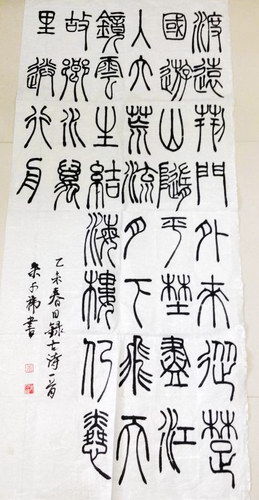 渡遠荊門外来從楚
國遊山隨平埜盡江
入大荒流月下飛天
鏡雲生結海樓仍戀
故鄉水萬
里送行舟
乙未春日録古詩一首
書